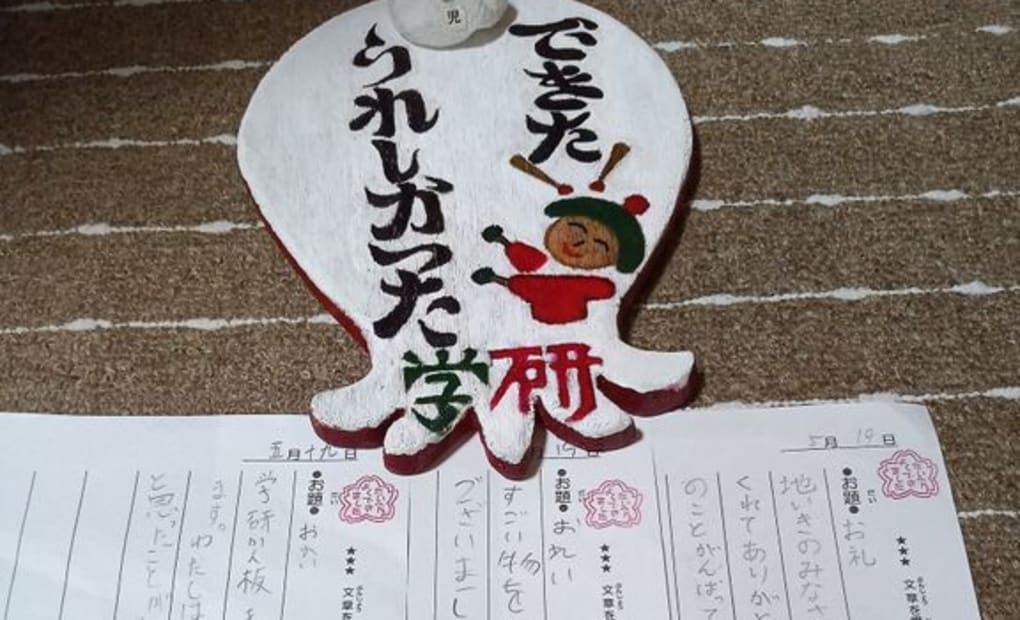 児
できた
うれしかった
学研
5月19日
お題 お礼
★★★ 文章を
地いきのみなさ
くれてありがと
のことがんばって
月19日
お題 おれい
★★★ 文章を
すごい物を
ございまし
五月十九日
お題 おれい
★★★ 文章を
学研かん板を
ます。わたしは
と思ったことが